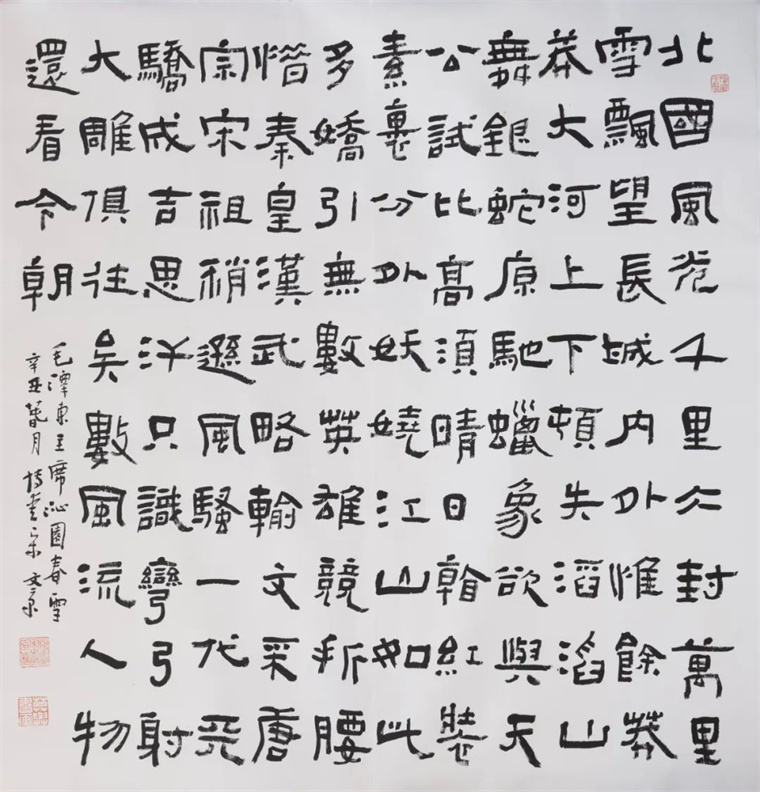 北國風光千里仌封萬里
雪飄望長城内外惟餘莽
莽大河上下頓失滔滔山
舞銀蛇原馳蠟象欲與天
公試比高須晴日看紅裝
素裹分外妖嬈江山如此
多嬌引無數英雄競折腰
惜秦皇漢武略輸文采唐
宗宋祖稍遜風騷一代天
驕成吉思汗只識彎弓射
大雕俱往矣數風流人物
還看今朝
毛澤東主席沁園春雪
辛丑 月 宋文京